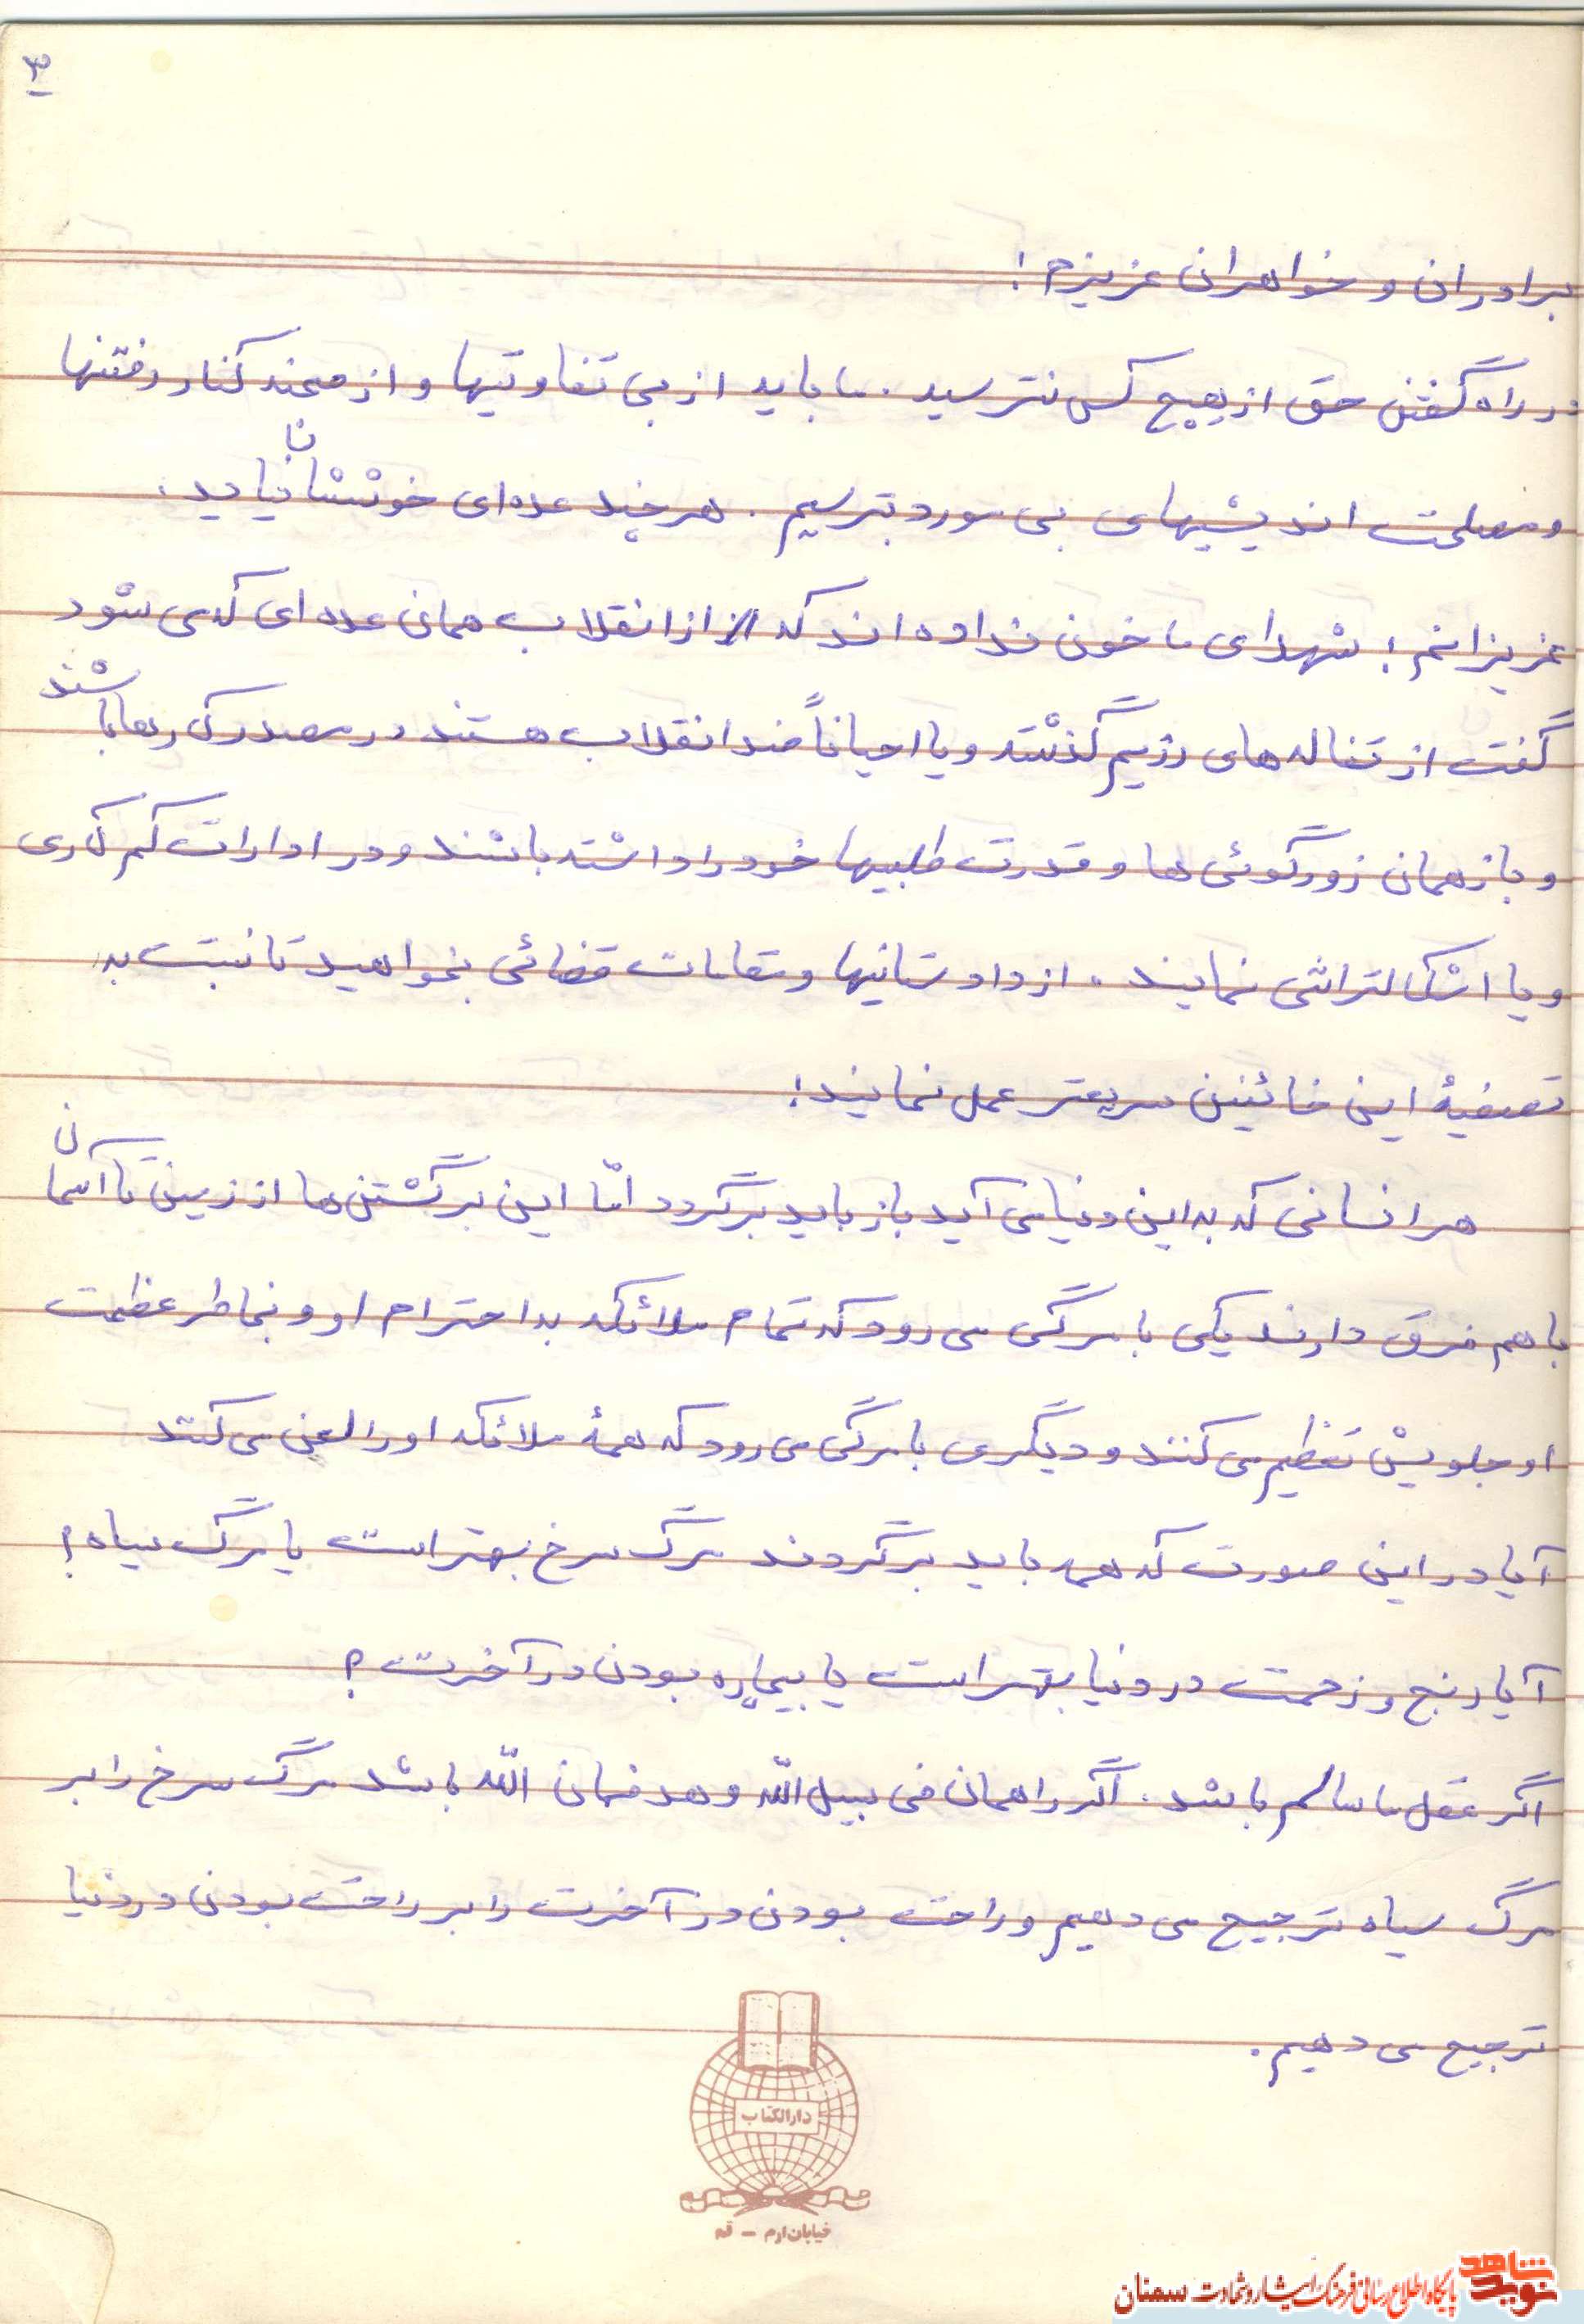 ۳
برادران و خواهران عزیزم!
در راه گفتن حق از هیچ کس نترسید. ما باید از بی تفاوتیها و از صحنه کنار رفتنها
و مصلحت اندیشیهای بی مورد بترسیم. هر چند عده‌ای خوششان نیاید.
عزیزانم! شهدای ما خون نداده‌اند که از انقلاب همان عده‌ای که می شود
گفت از تفاله‌های رژیم گذشته و یا احیاناً ضد انقلاب هستند در مصدر کارها باشند
و باز همان زورگوئی ها و قدرت طلبیها خود را داشته باشند و در ادارات کم کاری
و یا اشکالتراشی نمایند. از دادستانیها و مقامات قضائی بخواهید تا نسبت به
تصفیۀ این خائنین سریعتر عمل نمایند!
هر انسانی که به این دنیا می آید باز باید برگردد امّا این برگشتن ها از زمین تا آسمان
با هم فرق دارند یکی با مرگی می رود که تمام ملائکه به احترام او و بخاطر عظمت
او جلویش تعظیم می کنند و دیگری با مرگی می رود که همۀ ملائکه او را لعن می کنند
آیا در این صورت که همه باید برگردند مرگ سرخ بهتر است یا مرگ سیاه؟
آیا رنج و زحمت در دنیا بهتر است یا بیچاره بودن در آخرت؟
اگر عقل ما سالم باشد. اگر راهمان فی سبیل اللّه و هدفمان اللّه باشد مرگ سرخ را بر
مرگ سیاه ترجیح می دهیم و راحت بودن در آخرت را بر راحت بودن در دنیا
ترجیح می دهیم.
دارالکتاب
خیابان ارم - قم
نوید شاهد
پایگاه اطلاع رسانی فرهنگ ایثار و شهادت سمنان